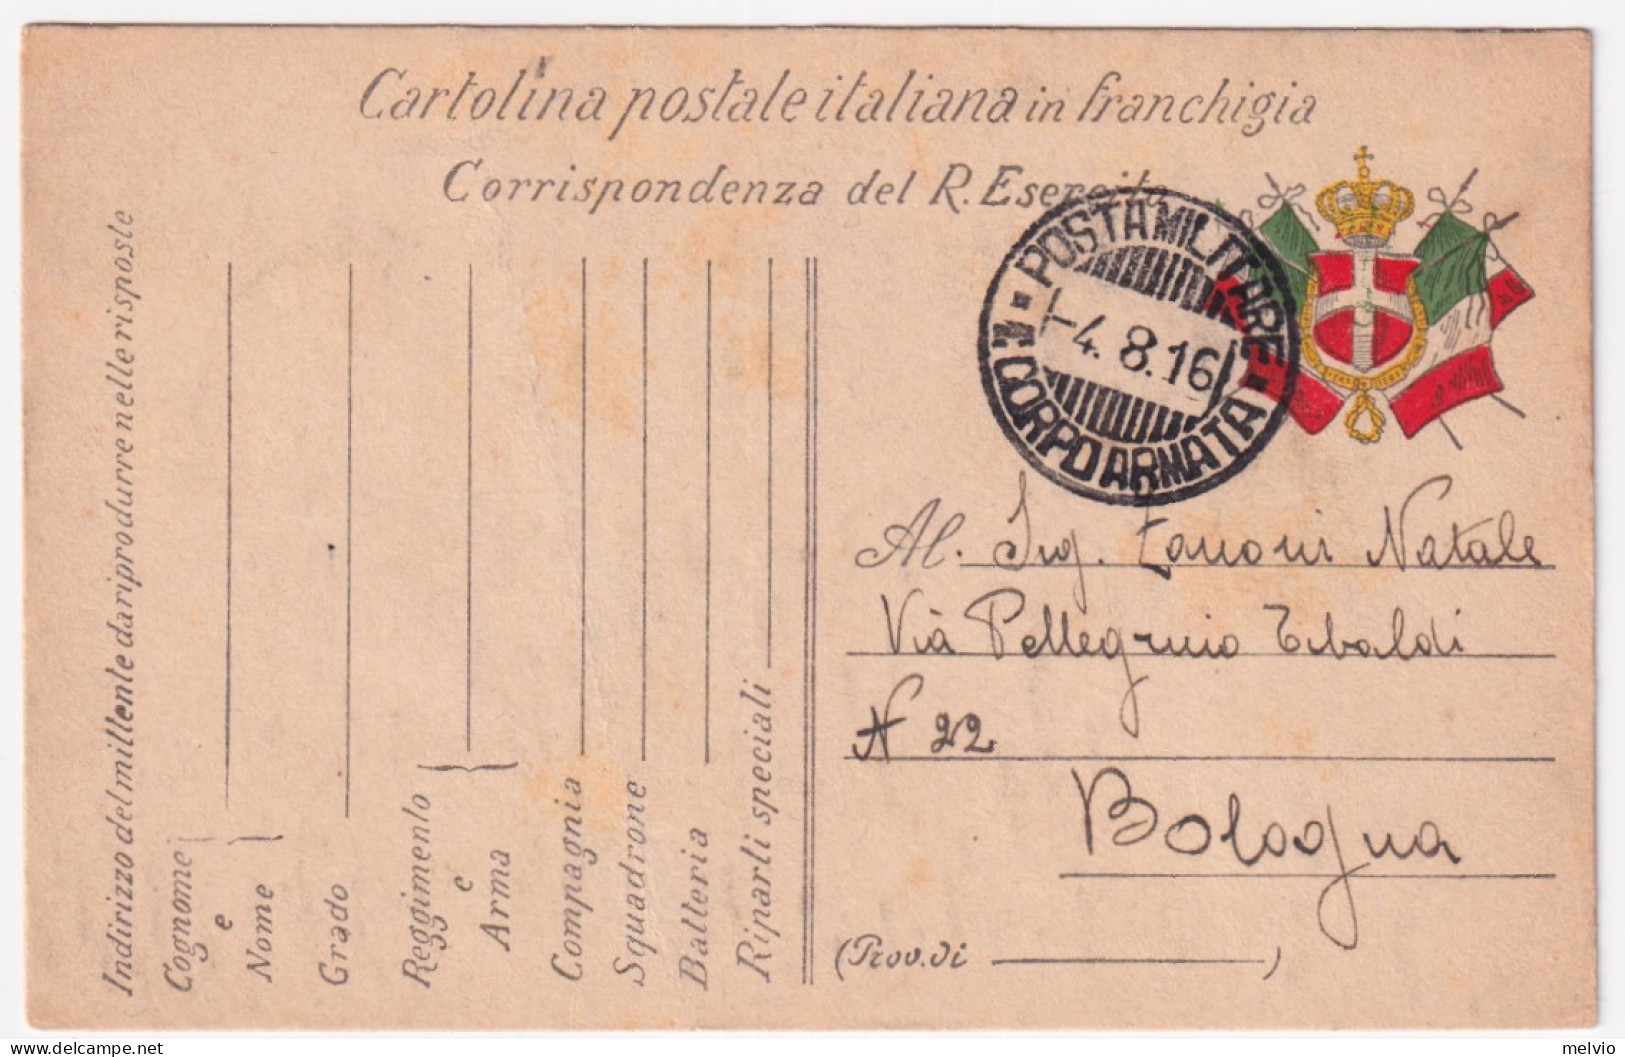 Cartolina postale italiana in franchigia
Corrispondenza del R. Esercito
POSTA MILITARE
-4. 8. 16
CORPO ARMATA
Al. Ing. Zanoni Natale
Via Pellegrino Tibaldi
N 22
Bologna
(Prov. di )
Indirizzo del mittente da riprodurre nelle risposte
Cognome
e
Nome
Grado
Reggimento
e
Arma
Compagnia
Squadrone
Batteria
Riparti speciali
melvio